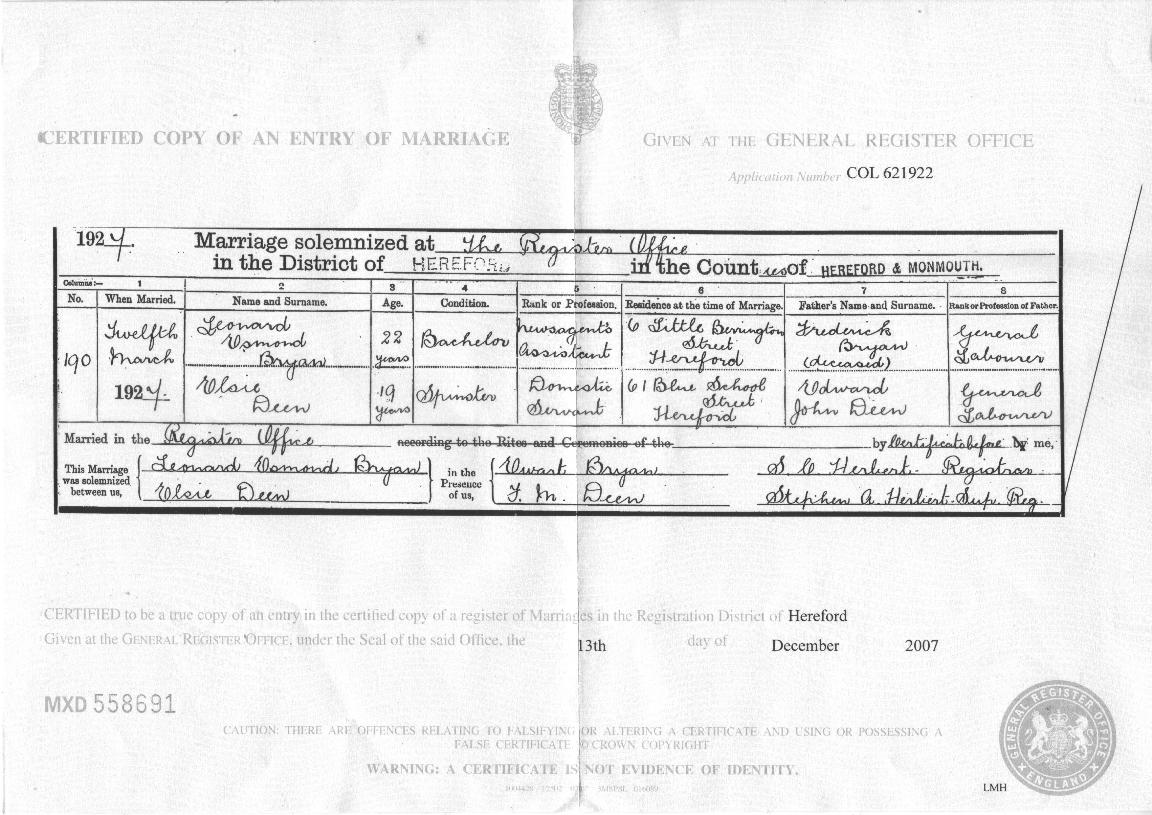 CERTIFIED COPY OF AN ENTRY OF MARRIAGE
GIVEN AT THE GENERAL REGISTER OFFICE
Application Number COL 621922
1924. Marriage solemnized at The Register Office
in the District of HEREFORD in the Counties of HEREFORD & MONMOUTH.
Columns:— 1 2 3 4 5 6 7 8
No. When Married. Name and Surname. Age. Condition. Rank or Profession. Residence at the time of Marriage. Father's Name and Surname. Rank or Profession of Father.
190
Twelfth
March
1924.
Leonard
Osmond
Bryan
22
years
Bachelor
Newsagent's
Assistant
6 Little Berrington
Street
Hereford
Frederick
Bryan
(deceased)
General
Labourer
Elsie
Deen
19
years
Spinster
Domestic
Servant
61 Blue School
Street
Hereford
Edward
John Deen
General
Labourer
Married in the Register Office according to the Rites and Ceremonies of the by Certificate before by me,
This Marriage
was solemnized
between us,
Leonard Osmond Bryan
Elsie Deen
in the
Presence
of us,
Ewart Bryan
F. M. Deen
S C Herbert. Registrar
Stephen A. Herbert. Sup. Reg.
CERTIFIED to be a true copy of an entry in the certified copy of a register of Marriages in the Registration District of Hereford
Given at the GENERAL REGISTER OFFICE, under the Seal of the said Office, the 13th day of December 2007
MXD 558691
CAUTION: THERE ARE OFFENCES RELATING TO FALSIFYING OR ALTERING A CERTIFICATE AND USING OR POSSESSING A
FALSE CERTIFICATE © CROWN COPYRIGHT
WARNING: A CERTIFICATE IS NOT EVIDENCE OF IDENTITY.
GENERAL REGISTER OFFICE
ENGLAND
LMH